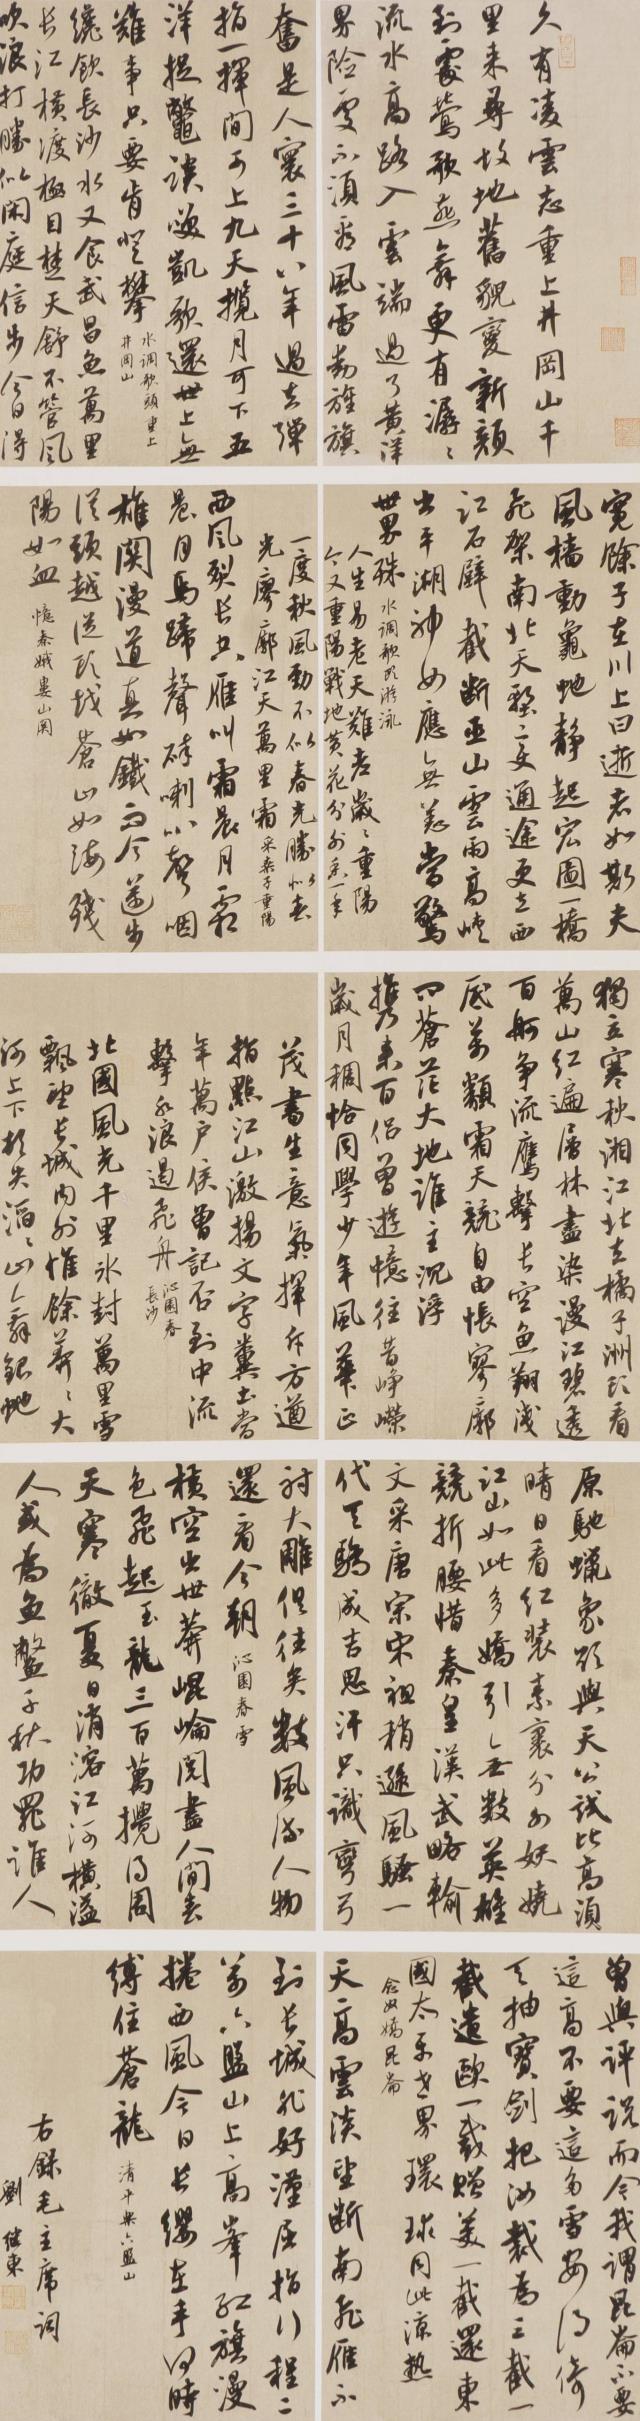 久有凌雲志重上井岡山千
里來尋故地舊貌變新顏
到處鶯歌燕舞更有潺々
流水高路入雲端過了黃洋
界險處不須看風雷動旌旗
奮是人寰三十八年過去彈
指一揮間可上九天攬月可下五
洋捉鱉談笑凱歌還世上無
難事只要肯登攀 水调歌頭重上
井岡山
纔飲長沙水又食武昌魚萬里
長江橫渡極目楚天舒不管風
吹浪打勝似閑庭信步今日得
寬餘子在川上曰逝者如斯夫
風檣動龜蛇靜起宏圖一橋
飛架南北天塹變通途更立西
江石壁截斷巫山雲雨高峽
出平湖神女應無恙當驚
世界殊 水调歌頭游泳
人生易老天難老歲々重陽
今又重陽戰地黃花分外香一年
一度秋風勁不似春光勝似春
光廖廓江天萬里霜 采桑子重陽
西風烈長空雁叫霜晨月霜
晨月馬蹄聲碎喇叭聲咽
雄關漫道真如鐵而今邁步
從頭越從頭越蒼山如海殘
陽如血 憶秦娥婁山関
獨立寒秋湘江北去橘子洲頭看
萬山紅遍層林盡染漫江碧透
百舸争流鷹擊長空魚翔淺
底萬類霜天競自由悵寥廓
問蒼茫大地誰主沉浮
攜來百侣曾遊憶往昔崢嶸
歲月稠恰同學少年風華正
茂書生意氣揮斥方遒
指點江山激揚文字糞土當
年萬户侯曾記否到中流
擊水浪遏飛舟 沁園春
長沙
北國風光千里冰封萬里雪
飄望長城内外惟餘莽々大
河上下頓失滔々山舞銀蛇
原馳蠟象欲與天公試比高須
晴日看紅装素裹分外妖嬈
江山如此多嬌引無數英雄
競折腰惜秦皇漢武略輸
文采唐宗宋祖稍遜風騷一
代天驕成吉思汗只識彎弓
射大雕俱往矣數風流人物
還看今朝 沁園春雪
橫空出世莽崐崘閱盡人間春
色飛起玉龍三百萬攪得周
天寒徹夏日消溶江河橫溢
人或爲魚鱉千秋功罪誰人
曾與評説而今我謂昆崙不要
這高不要這多雪安得倚
天抽寶劍把汝裁爲三截一
截遺歐一截贈美一截還東
國太平世界環球同此涼熱
念奴嬌昆崙
天高雲淡望斷南飛雁不
到長城非好漢屈指行程二
萬六盤山上高峯紅旗漫
捲西風今日長纓在手何時
縛住蒼龍 清平樂六盤山
右錄毛主席詞
劉继東